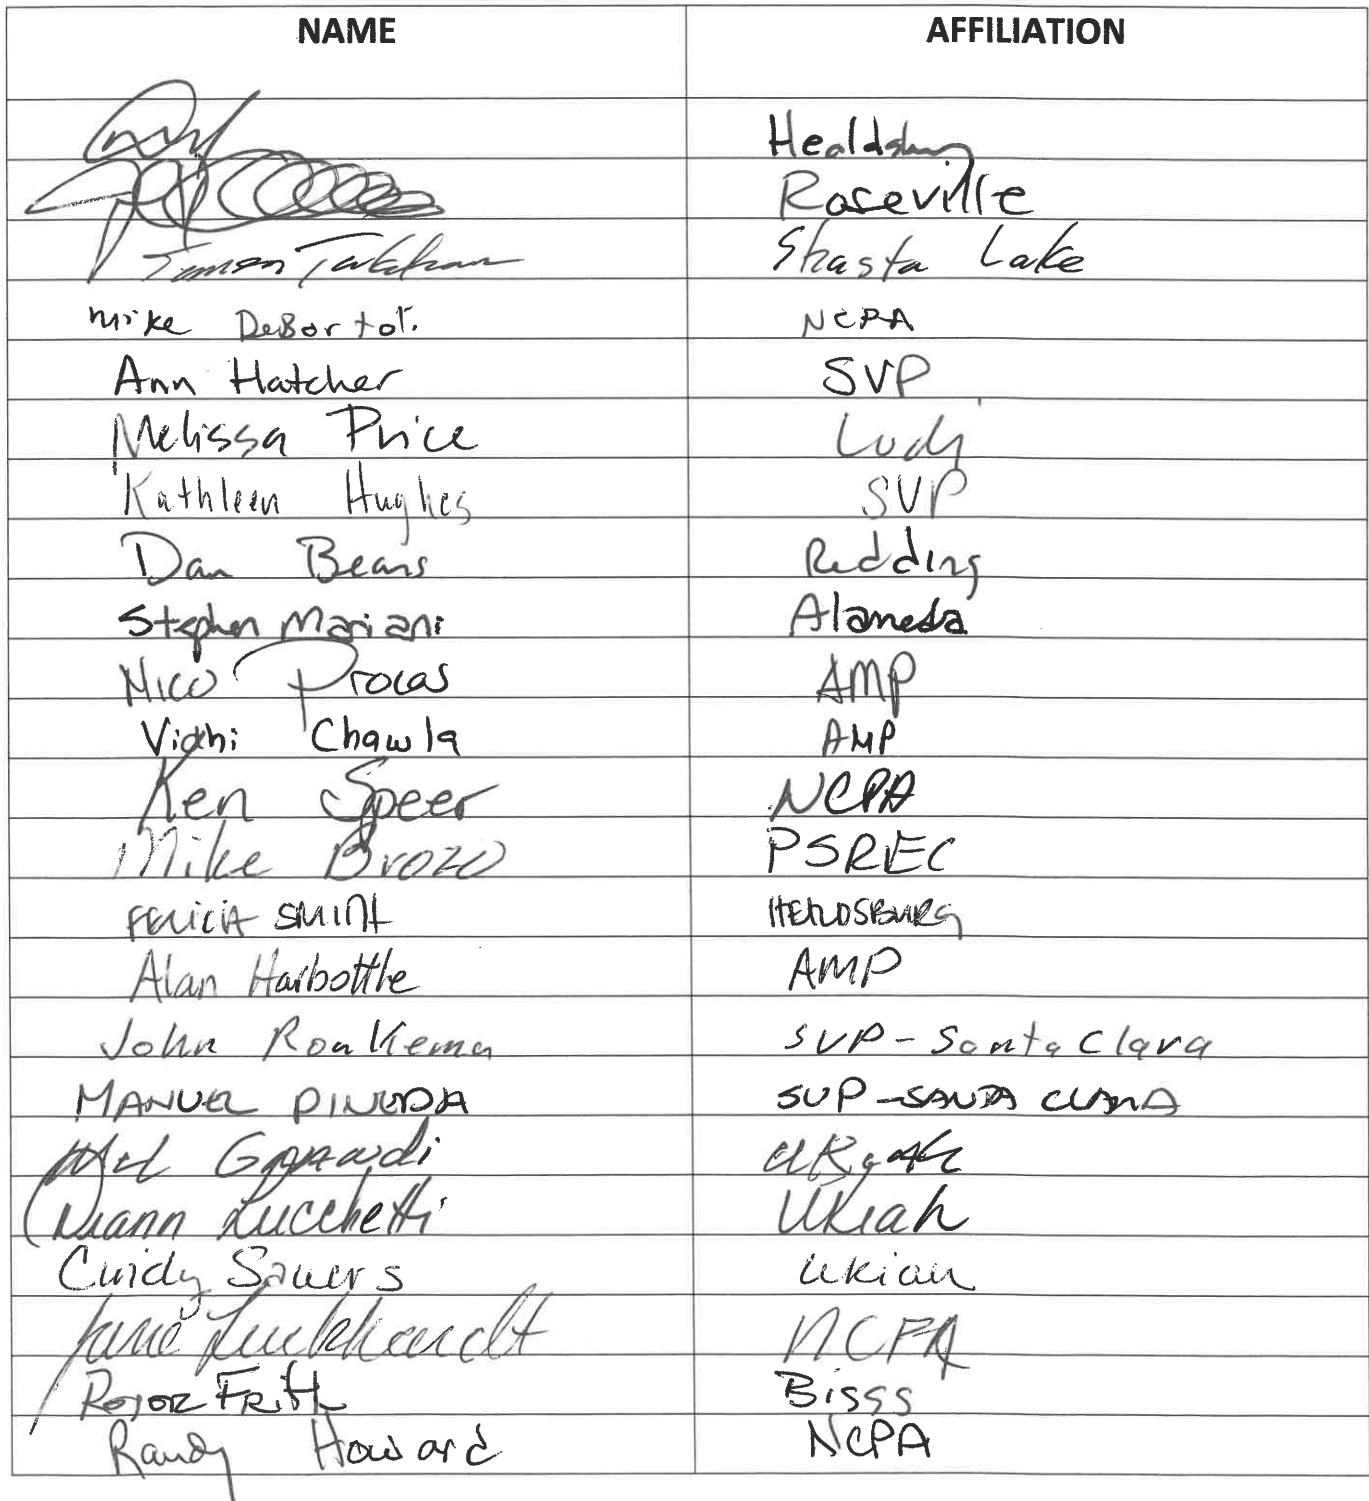 NAME AFFILIATION
Healdsburg
Roseville
Shasta Lake
Mike DeBortoli NCPA
Ann Hatcher SVP
Melissa Price Lodi
Kathleen Hughes SVP
Dan Beans Redding
Stephen Mariani Alameda
Nico Procos AMP
Vidhi Chawla AMP
Ken Speer NCPA
Mike Brozo PSREC
FELICIA SMITH HEALDSBURG
Alan Harbottle AMP
John Roukema SVP - Santa Clara
MANUEL PINEDA SVP - SANTA CLARA
Mel Grandi Ukiah
Diann Lucchetti Ukiah
Cindy Sauers Ukiah
Jane Luckhardt NCPA
Roger Frith Biggs
Randy Howard NCPA